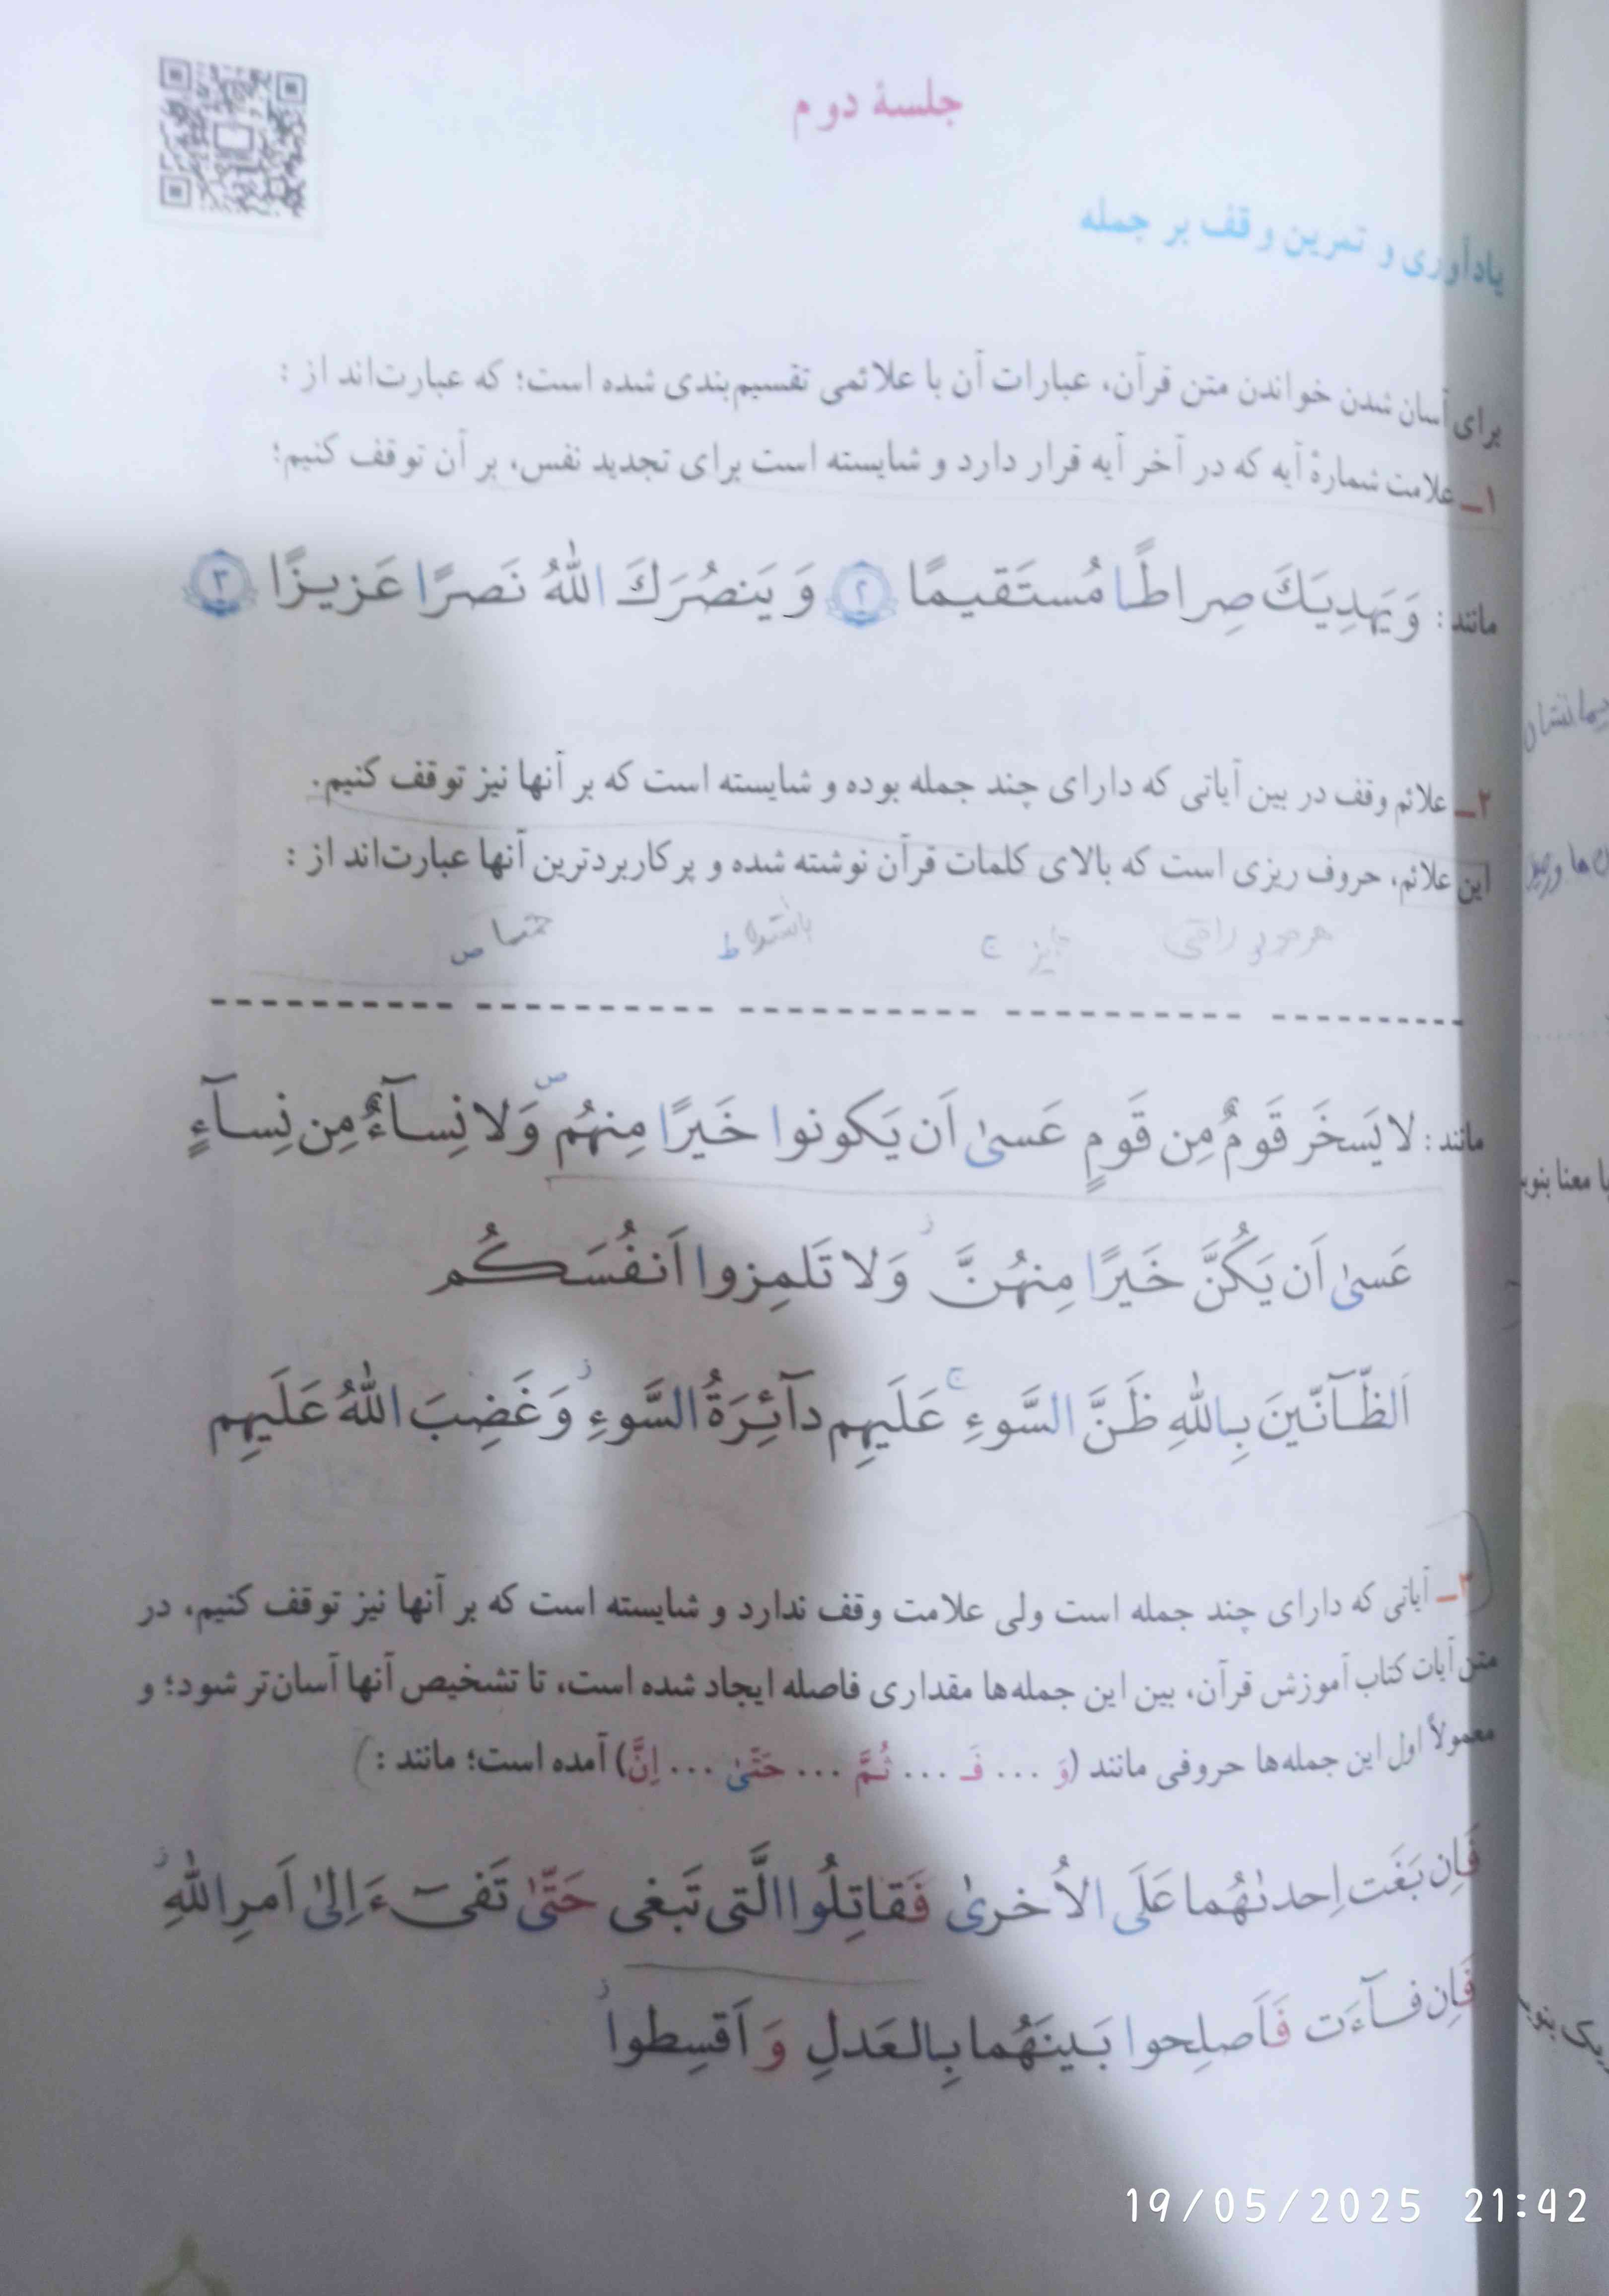 جلسۀ دوم
یادآوری و تمرین وقف بر جمله
برای آسان شدن خواندن متن قرآن، عبارات آن با علائمی تقسیم‌بندی شده است؛ که عبارت‌اند از :
۱ــ علامت شمارۀ آیه که در آخر آیه قرار دارد و شایسته است برای تجدید نفس، بر آن توقف کنیم؛
مانند : وَ یَهدِیَكَ صِراطًا مُستَقیمًا ۲ وَ یَنصُرَكَ اللّٰهُ نَصرًا عَزیزًا ۳
۲ــ علائم وقف در بین آیاتی که دارای چند جمله بوده و شایسته است که بر آنها نیز توقف کنیم.
این علائم، حروف ریزی است که بالای کلمات قرآن نوشته شده و پرکاربردترین آنها عبارت‌اند از :
ج ط ص
مانند : لا یَسخَر قَومٌ مِن قَومٍ عَسیٰ اَن یَکونوا خَیرًا مِنهُم ص وَلا نِسآءٌ مِن نِسآءٍ
عَسیٰ اَن یَکُنَّ خَیرًا مِنهُنَّ ز وَلا تَلمِزوا اَنفُسَکُم
اَلظّآنّینَ بِاللّٰهِ ظَنَّ السَّوءِ ج عَلَیهِم دآئِرَةُ السَّوءِ ز وَ غَضِبَ اللّٰهُ عَلَیهِم
۳ــ آیاتی که دارای چند جمله است ولی علامت وقف ندارد و شایسته است که بر آنها نیز توقف کنیم، در
متن آیات کتاب آموزش قرآن، بین این جمله‌ها مقداری فاصله ایجاد شده است، تا تشخیص آنها آسان‌تر شود؛ و
معمولاً اول این جمله‌ها حروفی مانند (وَ ... فَـ ... ثُمَّ ... حَتّیٰ ... اِنَّ) آمده است؛ مانند :
فَاِن بَغَت اِحدىٰهُما عَلَی الاُخریٰ فَقاتِلُوا الَّتی تَبغی حَتّیٰ تَفیٓءَ اِلیٰ اَمرِ اللّٰهِ ز
فَاِن فآءَت فَاَصلِحوا بَینَهُما بِالعَدلِ وَ اَقسِطوا ز
یا معنا بنوی
یک بنوی
19/05/2025 21:42